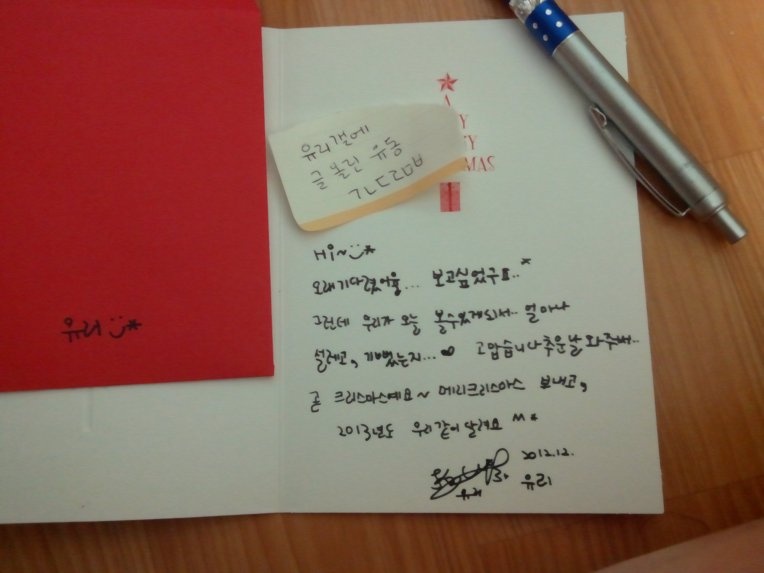 A
MAS
유리갤에
글 올린 유동
ㄱㄴㄷㄹㅁㅂ
Hi~
오래기다렸어용... 보고싶었구요..*
그런데 우리가 오늘 볼수있게되서.. 얼마나
설레고, 기뻤는지... 고맙습니다 추운날 와주셔..
곧 크리스마스예요~ 메리크리스마스 보내고,
2013년도 우리같이 달려요 ^^*
2012.12.
유리
유리
유리